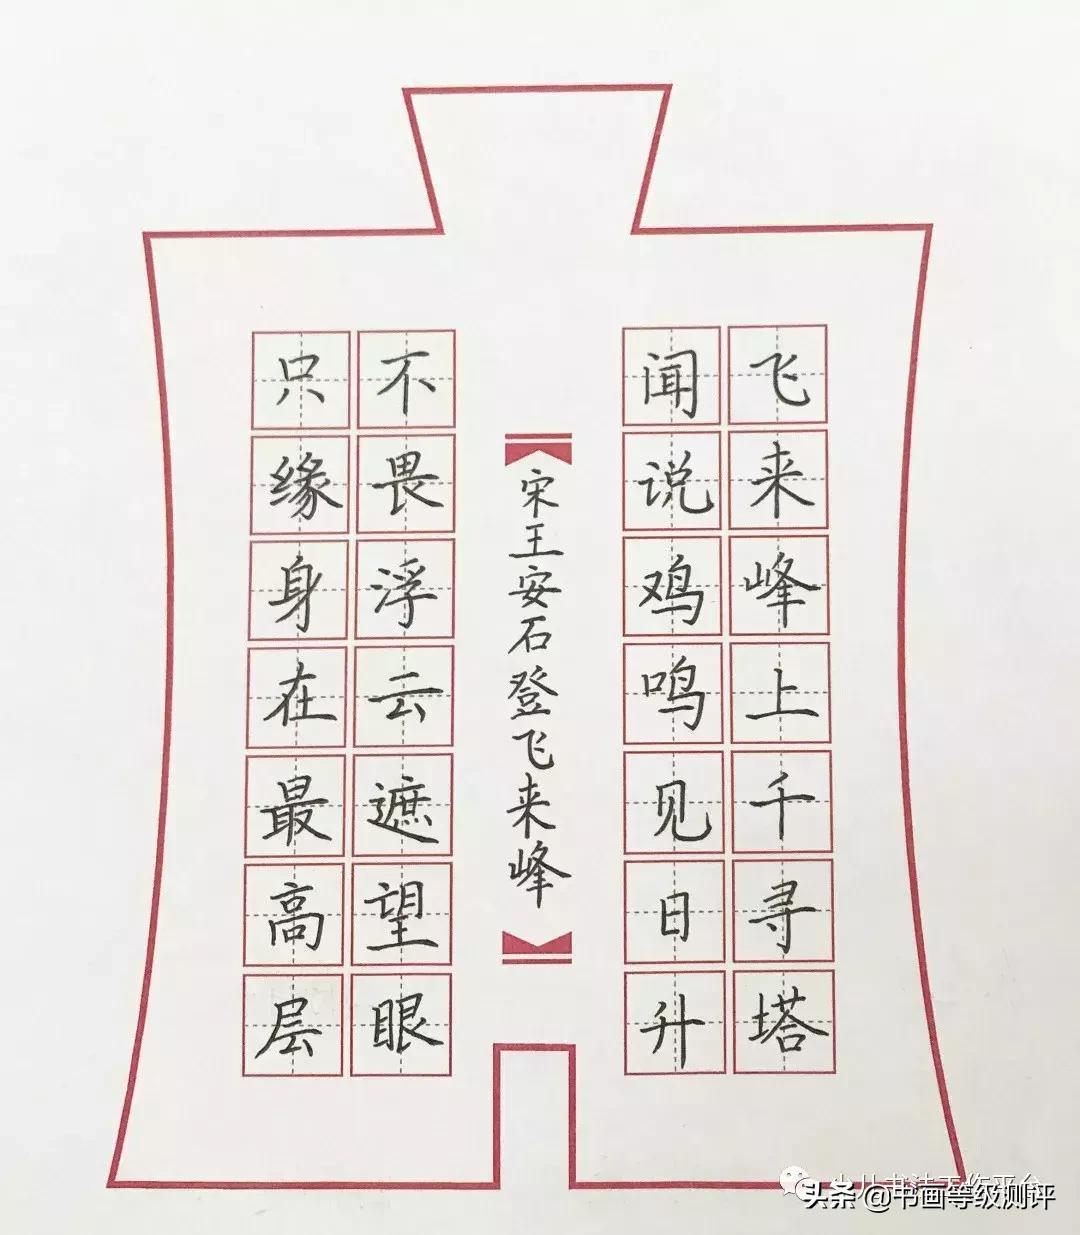 飞来峰上千寻塔
闻说鸡鸣见日升
宋王安石登飞来峰
不畏浮云遮望眼
只缘身在最高层
书法工作平台
头条@书画等级测评